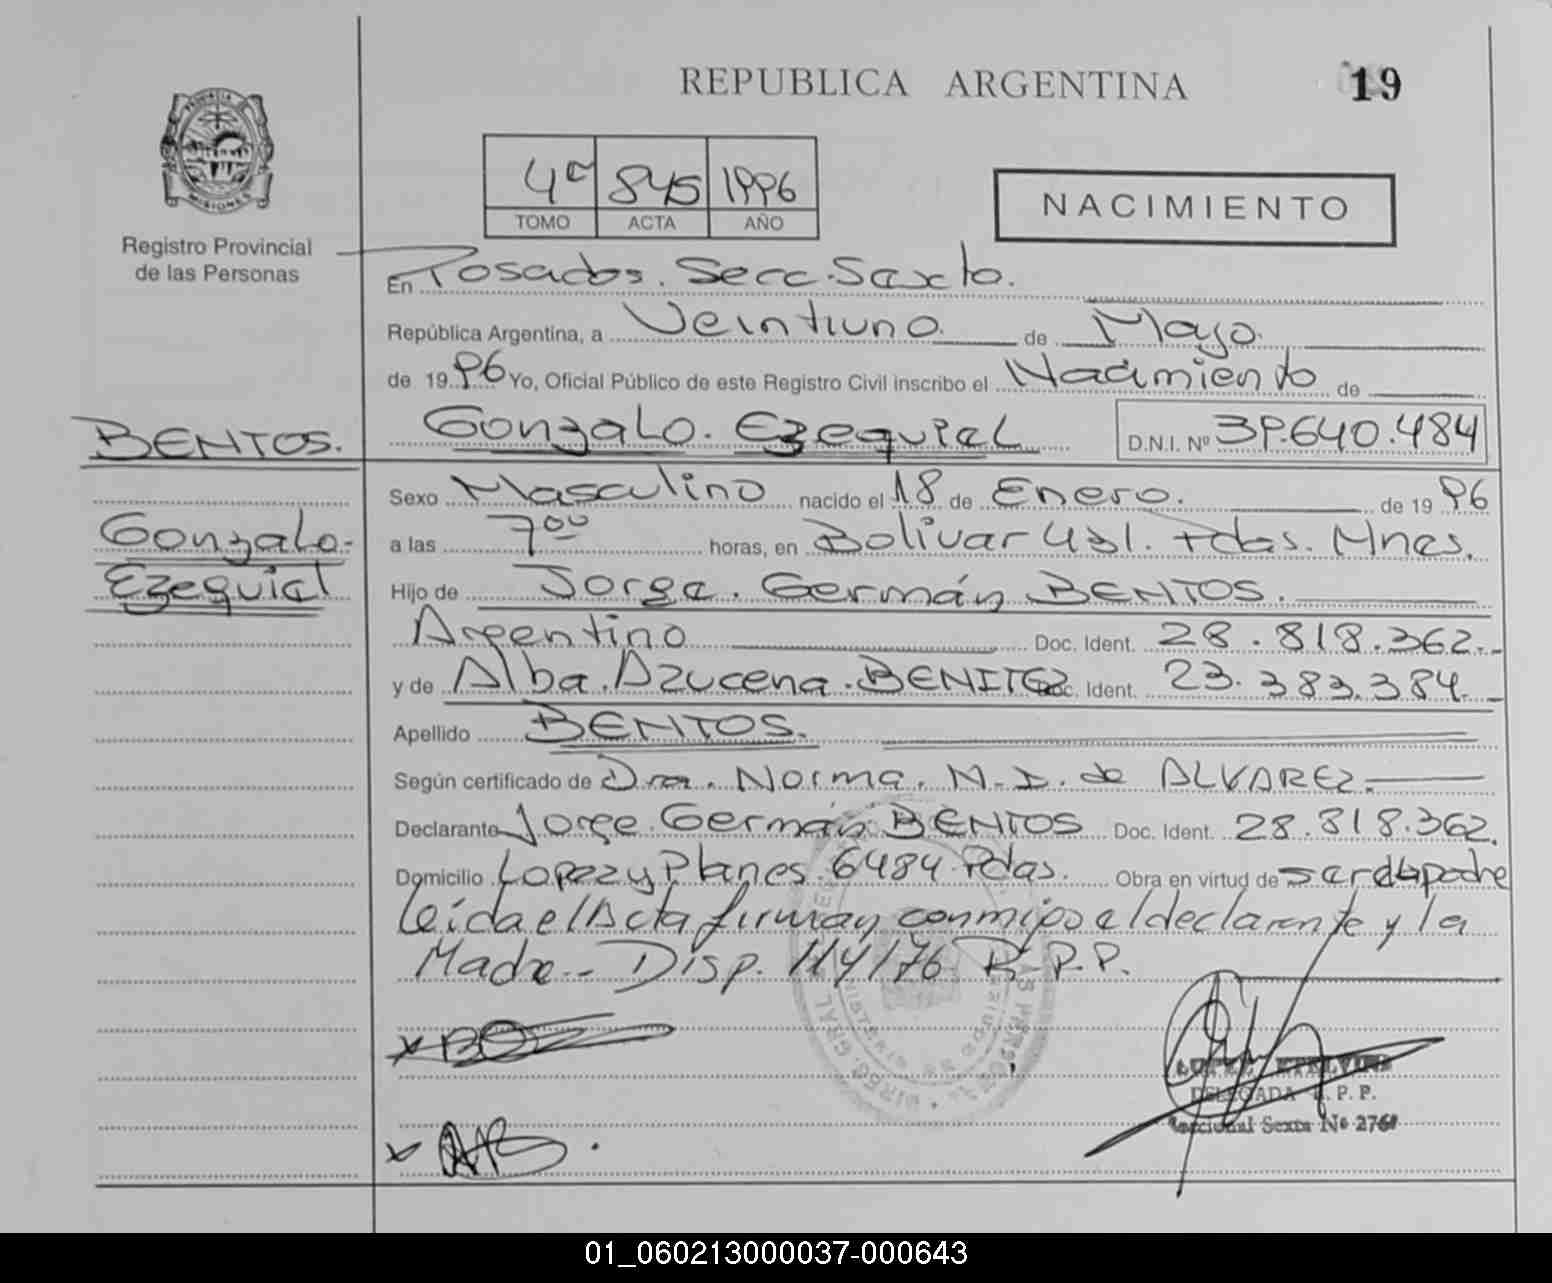 REPUBLICA ARGENTINA
19
MISIONES
Registro Provincial
de las Personas
4º 845 1996
TOMO ACTA AÑO
NACIMIENTO
En Posadas. Secc. Sexta.
República Argentina, a Veintiuno de Mayo.
de 1996 Yo, Oficial Público de este Registro Civil inscribo el Nacimiento de
BENTOS.
Gonzalo. Ezequiel D.N.I. Nº 39.640.484
Gonzalo.
Ezequiel
Sexo Masculino nacido el 18 de Enero. de 1996
a las 7 00 horas, en Bolivar 431. Pdas. Mnes.
Hijo de Jorge. Germán BENTOS.
Argentino Doc. Ident. 28.818.362.
y de Alba. Azucena. BENITEZ Doc. Ident. 23.383.384.
Apellido BENTOS.
Según certificado de Dra. Norma. M. D. de ALVAREZ.
Declarante Jorge. Germán BENTOS Doc. Ident. 28.818.362.
Domicilio Lopez y Planes. 6484 Pdas. Obra en virtud de ser el padre
leída el Acta firman conmigo el declarante y la
Madre.- Disp. 114/76 R.P.P.
DELEGADA R. P. P.
Seccional Sexta Nº
01_060213000037-000643